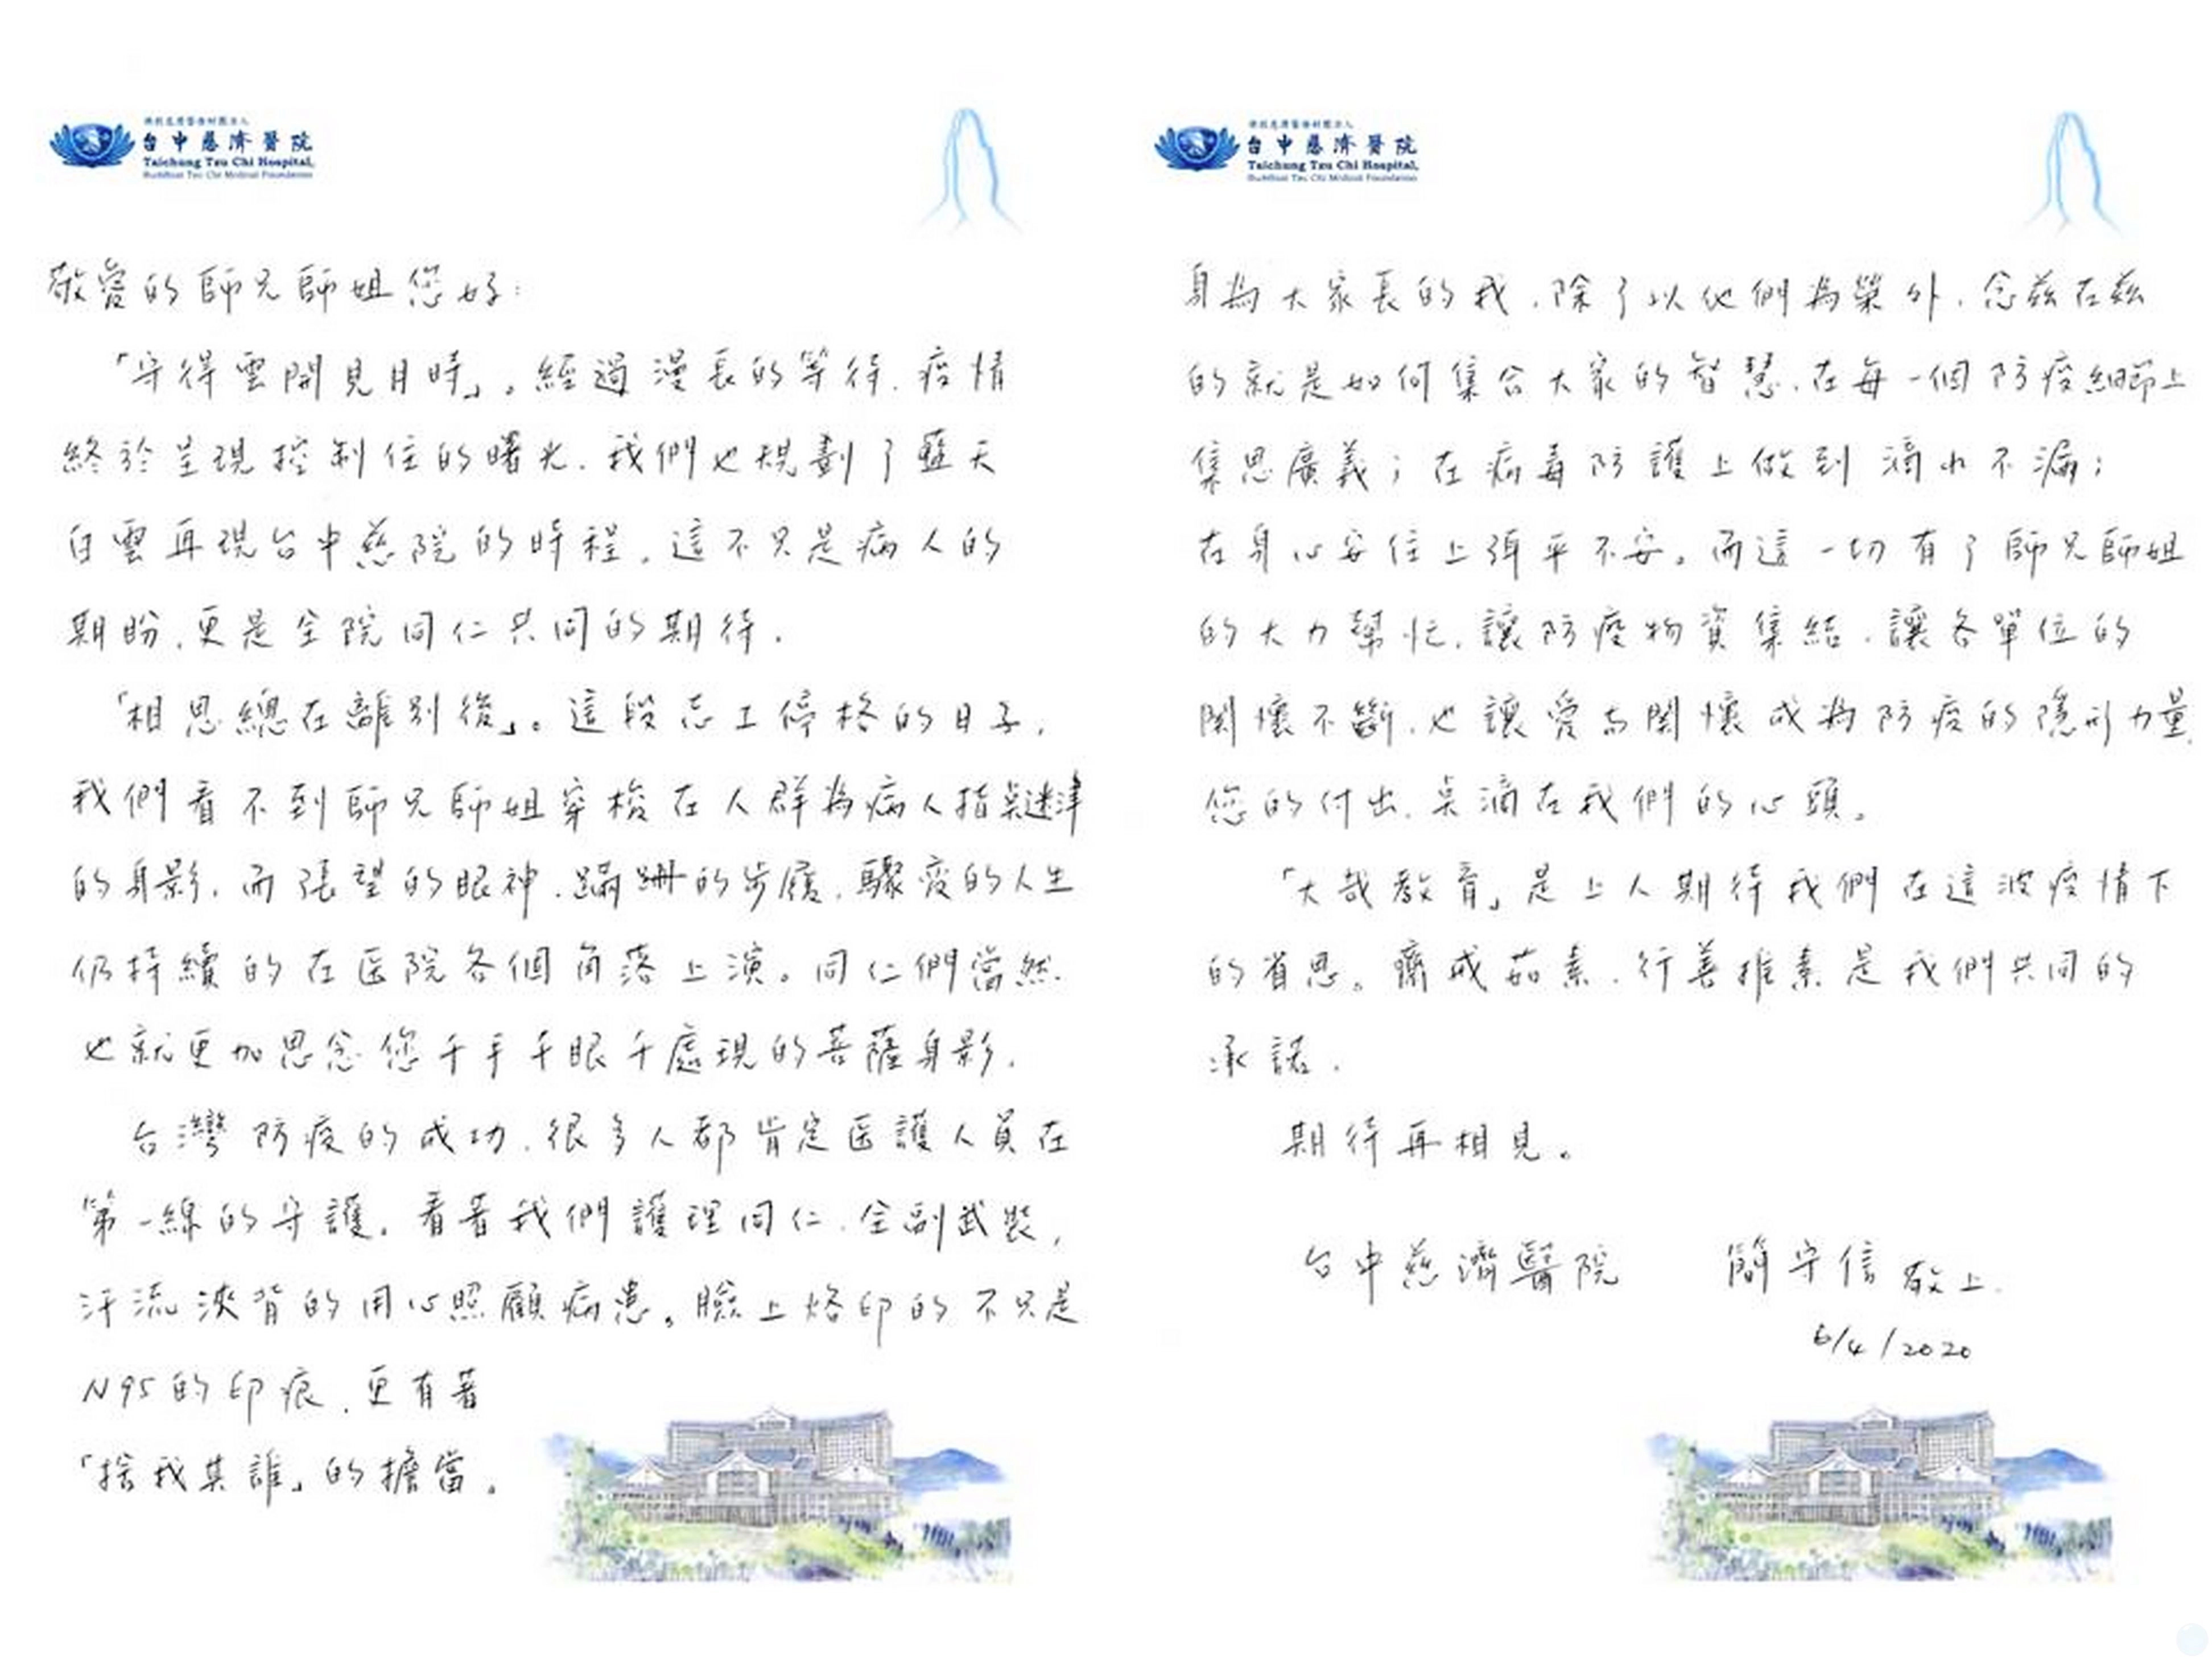 佛教慈濟醫療財團法人
台中慈濟醫院
Taichung Tzu Chi Hospital,
Buddhist Tzu Chi Medical Foundation
敬愛的師兄師姐您好：
「守得雲開見月時」。經過漫長的等待，疫情
終於呈現控制住的曙光，我們也規劃了藍天
白雲再現台中慈院的時程。這不只是病人的
期盼，更是全院同仁共同的期待。
「相思總在離別後」。這段志工停格的日子，
我們看不到師兄師姐穿梭在人群為病人指點迷津
的身影，而張望的眼神，蹣跚的步履，驟變的人生
仍持續的在医院各個角落上演。同仁們當然
也就更加思念您千手千眼千處現的菩薩身影。
台灣防疫的成功，很多人都肯定医護人員在
第一線的守護。看著我們護理同仁，全副武裝，
汗流浹背的用心照顧病患。臉上烙印的不只是
N95的印痕，更有著
「捨我其誰」的擔當。
佛教慈濟醫療財團法人
台中慈濟醫院
Taichung Tzu Chi Hospital,
Buddhist Tzu Chi Medical Foundation
身為大家長的我，除了以他們為榮外，念茲在茲
的就是如何集合大家的智慧，在每一個防疫細節上
集思廣義；在病毒防護上做到滴水不漏；
在身心安住上弭平不安。而這一切有了師兄師姐
的大力幫忙，讓防疫物資集結，讓各單位的
関懷不斷，也讓愛与関懷成為防疫的隱形力量，
您的付出，点滴在我們的心頭。
「大哉教育」是上人期待我們在這波疫情下
的省思。齋戒茹素，行善推素是我們共同的
承諾。
期待再相見。
台中慈濟醫院 簡守信 敬上
6/4/2020